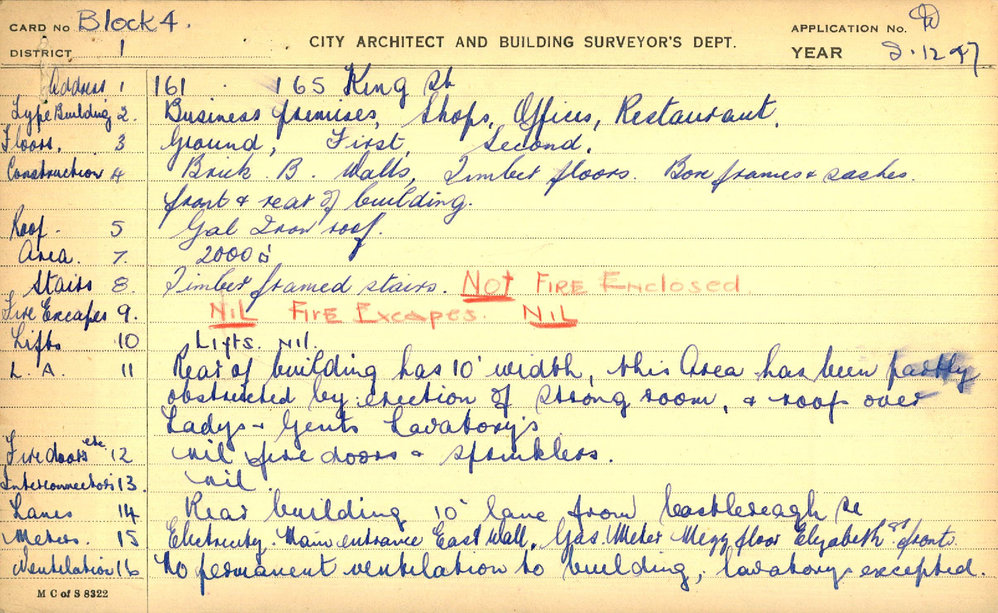 CARD No Block 4. APPLICATION No.
DISTRICT 1 CITY ARCHITECT AND BUILDING SURVEYOR'S DEPT. YEAR 2.12.47
Address 1 161 . 165 King St
Type Building 2. Business premises, Shops, Offices, Restaurant.
Floors. 3 Ground, First, Second.
Construction 4 Brick B. Walls, Timber floors. Box frames & sashes.
front & rear of building.
Roof. 5 Gal Iron roof.
Area. 7. 2000
Stairs 8. Timber framed stairs. Not FIRE Enclosed
Fire Excapes 9. NiL FIRE Excapes. NiL
Lifts 10 Lifts. nil.
L. A. 11 Rear of building has 10' width, this Area has been partly
obstructed by erection of strong room, & roof over
Ladys & Gents Lavatory's
Firedoors etc 12 nil fire doors & sprinklers.
Interconnectors 13. nil.
Lanes 14 Rear building 10' lane from Castlereagh St
Meters. 15 Electricity. Main entrance East Wall. Gas Meter Mezz floor Elizabeth St front.
Ventelation 16 No permanent ventelation to building, lavatorys excepted.
M C of S 8322